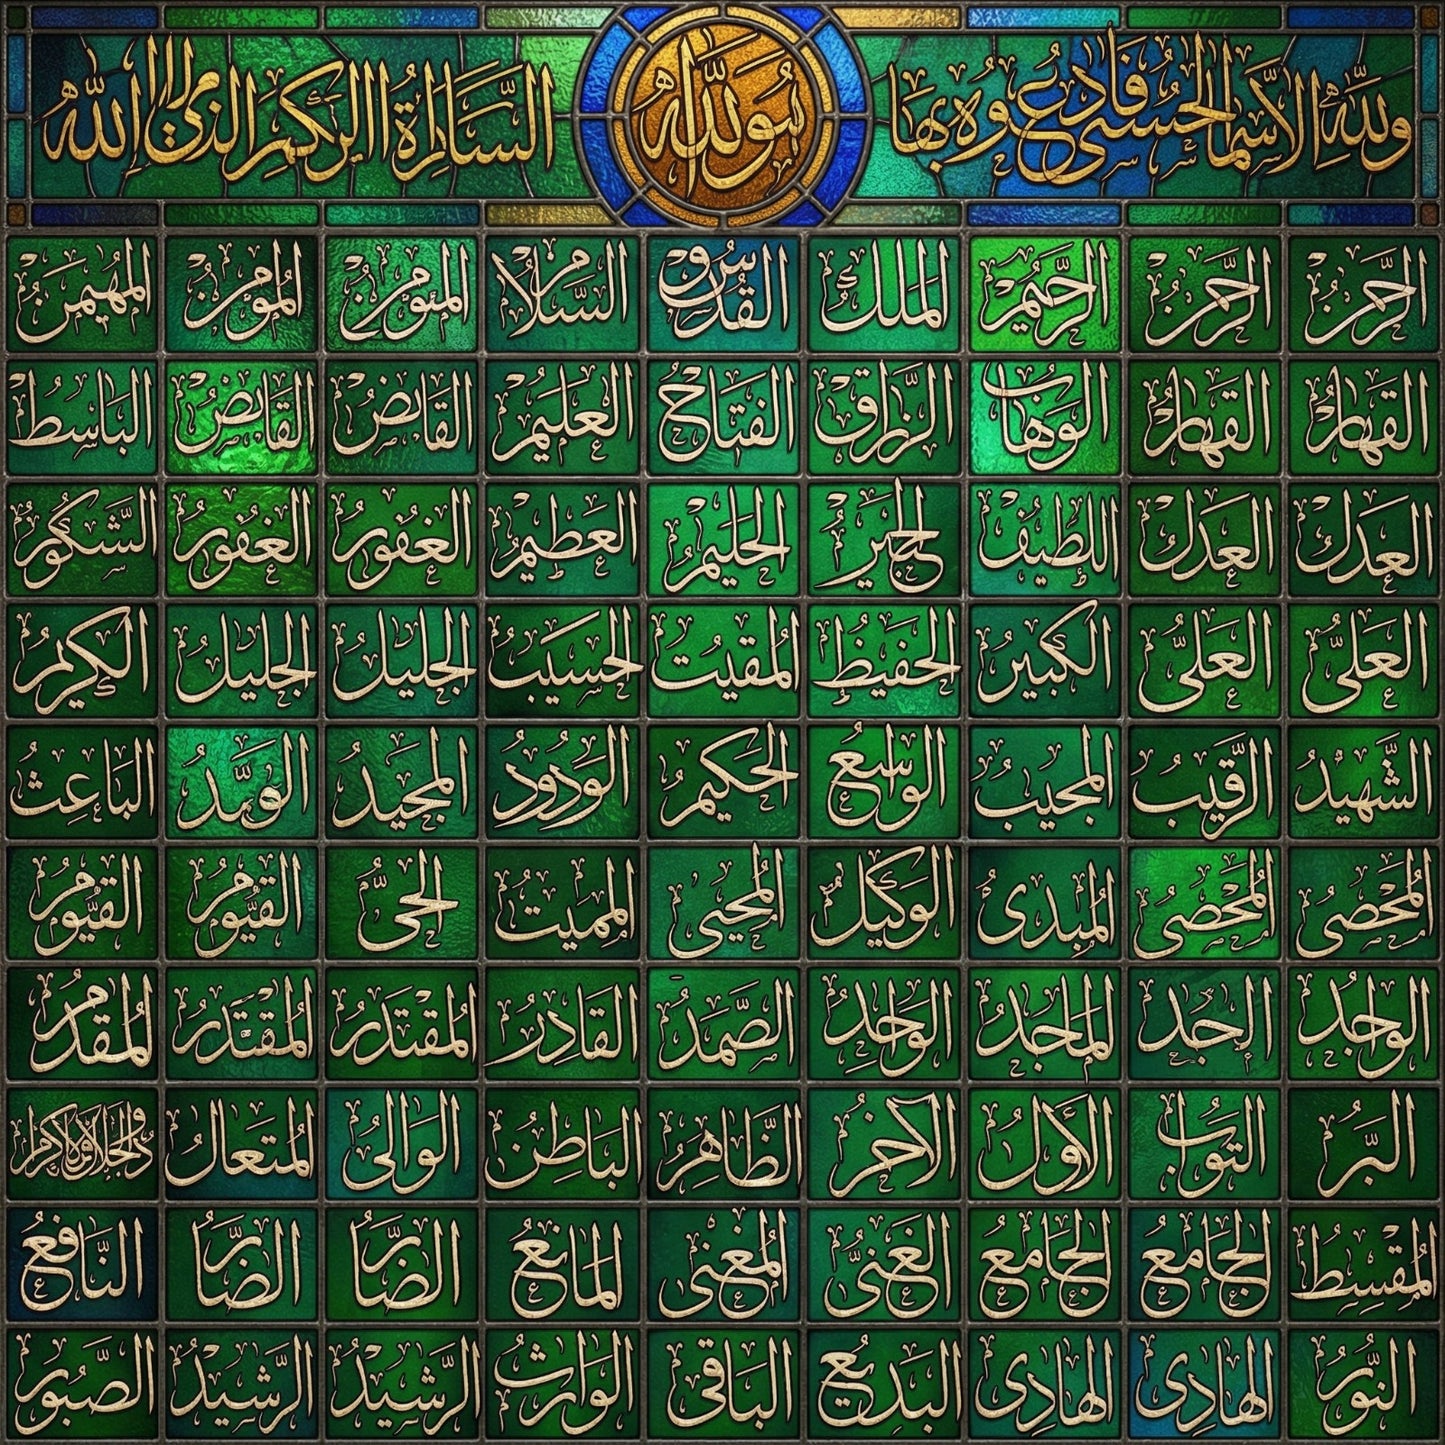 ولله الاسما الحسنى فادعوه بها
الرحمن الرحمن الرحيم الملك القدوس السلام المؤمن المهيمن
القهار القهار الوهاب الرزاق الفتاح العليم القابض القابض الباسط
العدل العدل اللطيف الحليم العظيم الغفور الغفور الشكور
العلي العلي الكبير الحفيظ المقيت الحسيب الجليل الجليل الكريم
الشهيد الرقيب المجيب الواسع الحكيم الودود المجيد الباعث
المحصى المحصى المبدى الوكيل المحيى المميت الحى القيوم القيوم
الواجد الماجد الواحد الصمد القادر المقتدر المقتدر المقدم
البر التواب الأول الآخر الظاهر الباطن الوالى المتعال
المقسط الجامع الجامع الغنى المغنى المانع الضار الضار النافع
النور الهادى الهادى البديع الباقى الوارث الرشيد الرشيد الصبور